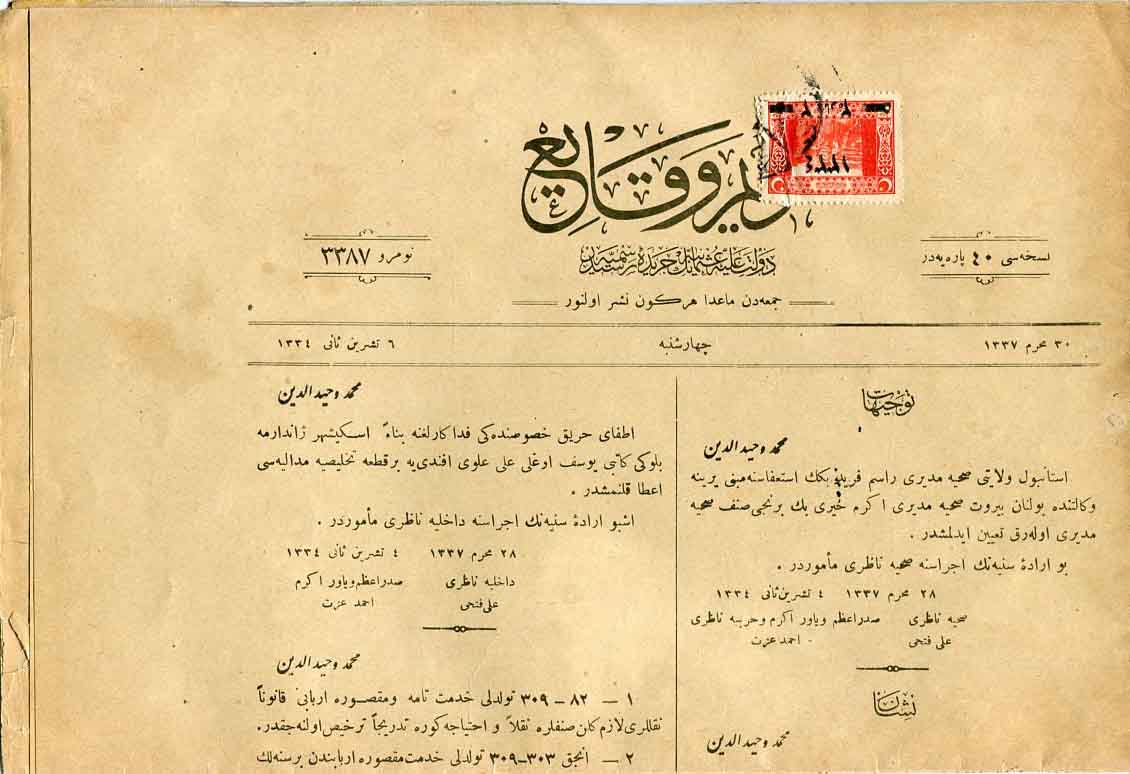 تقويم وقايع
نسخه‌سى ٤٠ پاره‌يه‌در
نومرو ٣٣٨٧
دولت عليه عثمانيه‌نك جريدهٔ رسميه‌سيدر
جمعه‌دن ماعدا هركون نشر اولنور
٣٠ محرم ١٣٣٧
چهارشنبه
٦ تشرين ثانى ١٣٣٤
توجيهات
محمد وحيد الدين
استانبول ولايتى صحيه مديرى راسم فريد بكك استعفاسنه مبنى يرينه
وكالتنده بولنان بيروت صحيه مديرى اكرم خيرى بك برنجى صنف صحيه
مديرى اوله‌رق تعيين ايدلمشدر .
بو ارادهٔ سنيه‌نك اجراسنه صحيه ناظرى مأموردر .
٢٨ محرم ١٣٣٧ ٤ تشرين ثانى ١٣٣٤
صحيه ناظرى صدراعظم و ياور اكرم وحربيه ناظرى
على فتحى احمد عزت
نشان
محمد وحيد الدين
محمد وحيد الدين
اطفاى حريق خصوصنده‌كى فداكارلغنه بناءً اسكيشهر ژاندارمه
بلوكى كاتبى يوسف اوغلى على علوى افندى‌يه برقطعه تخليصيه مداليه‌سى
اعطا قلنمشدر .
اشبو ارادهٔ سنيه‌نك اجراسنه داخليه ناظرى مأموردر .
٢٨ محرم ١٣٣٧ ٤ تشرين ثانى ١٣٣٤
داخليه ناظرى صدراعظم و ياور اكرم
على فتحى احمد عزت
محمد وحيد الدين
١ — ٨٢ – ٣٠٩ تولدلى خدمت تامه و مقصوره اربابى قانوناً
نقللرى لازم كان صنفلره نقلاً و احتياجه كوره تدريجاً ترخيص اولنه‌جقدر.
٢ — انجق ٣٠٣–٣٠٩ تولدلى خدمت مقصوره اربابندن برسنه‌لك